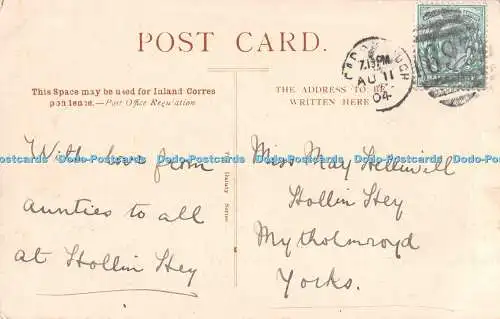 POST CARD.
This Space may be used for Inland Corres
pondence.—Post Office Regulation
THE ADDRESS TO BE
WRITTEN HERE
7.15 PM
AU 11
04
With love from
aunties to all
at Hollin Hey
Miss May Helliwell
Hollin Hey
Mytholmroyd
Yorks.
Dodo-Postcards Dodo-Postcards Dodo-Postcards Dodo-Postcards Dodo-Postcards Dodo-Postcards